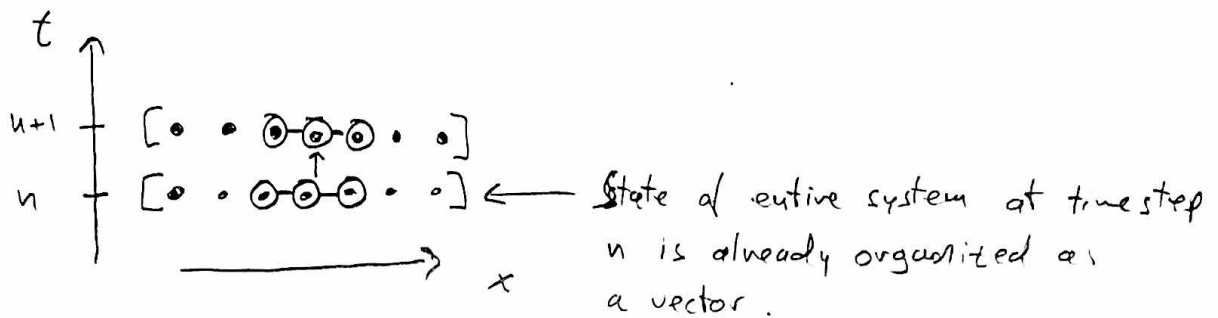 t
n+1
n
x
State of entire system at timestep
n is already organized as
a vector.